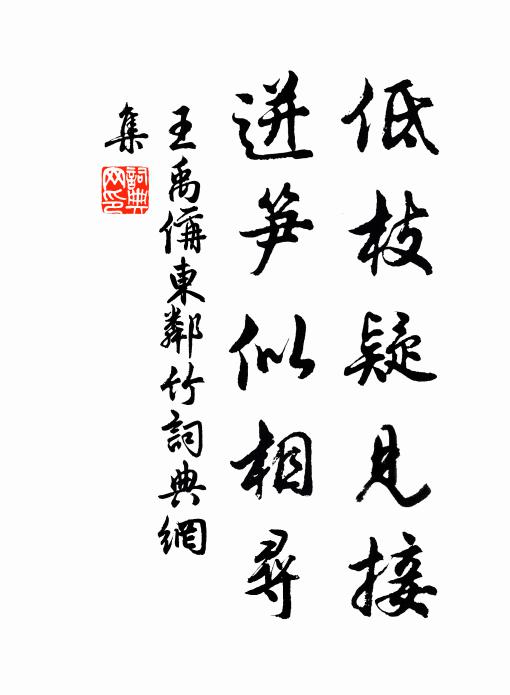 低枝疑見接
迸笋似相尋
王禹偁東鄰竹詞典網
集
詞典
网印